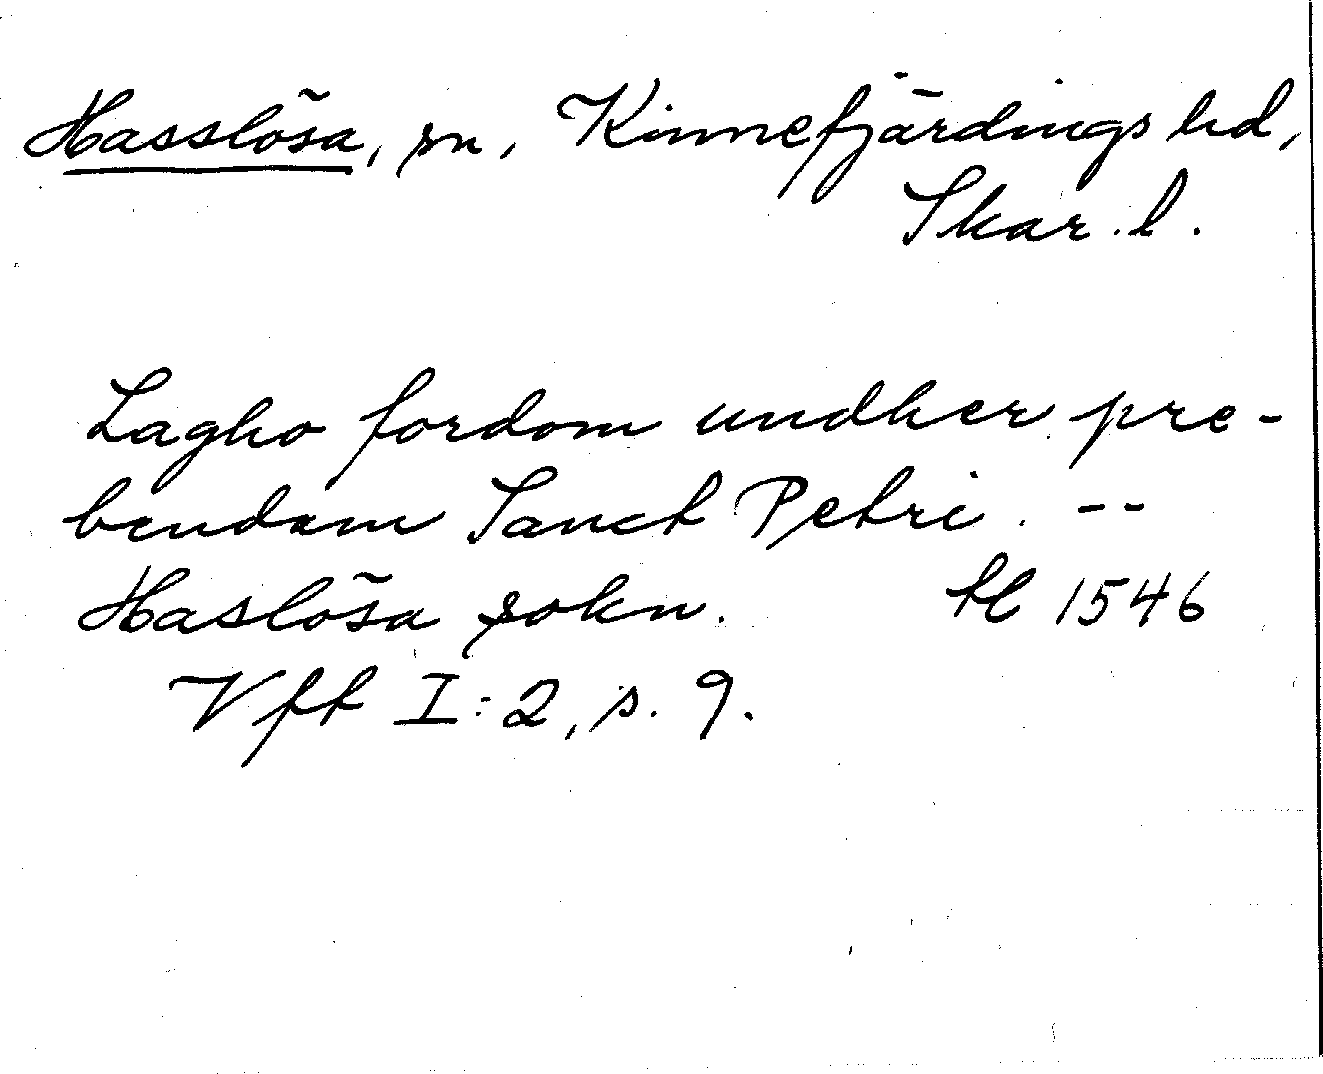 Hasslösa, sn, Kinnefjärdings hd,
Skar. l.
Lagho fordom undher pre-
bendam Sanct Petri. --
Haslösa sokn. st 1546
Vfft I:2, s. 9.